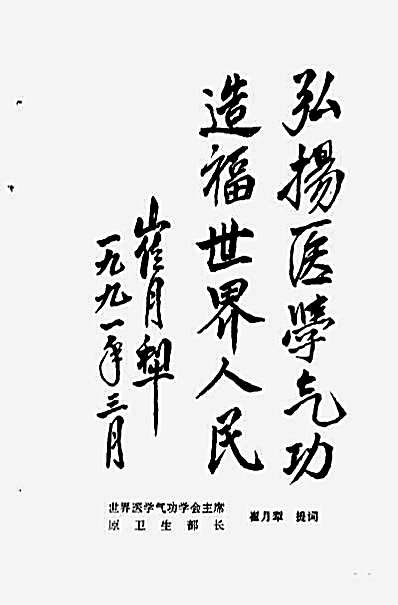 弘揚医學气功
造福世界人民
崔月犁
一九九一年三月
世界医学气功学会主席
原卫生部长
崔月犁 提词